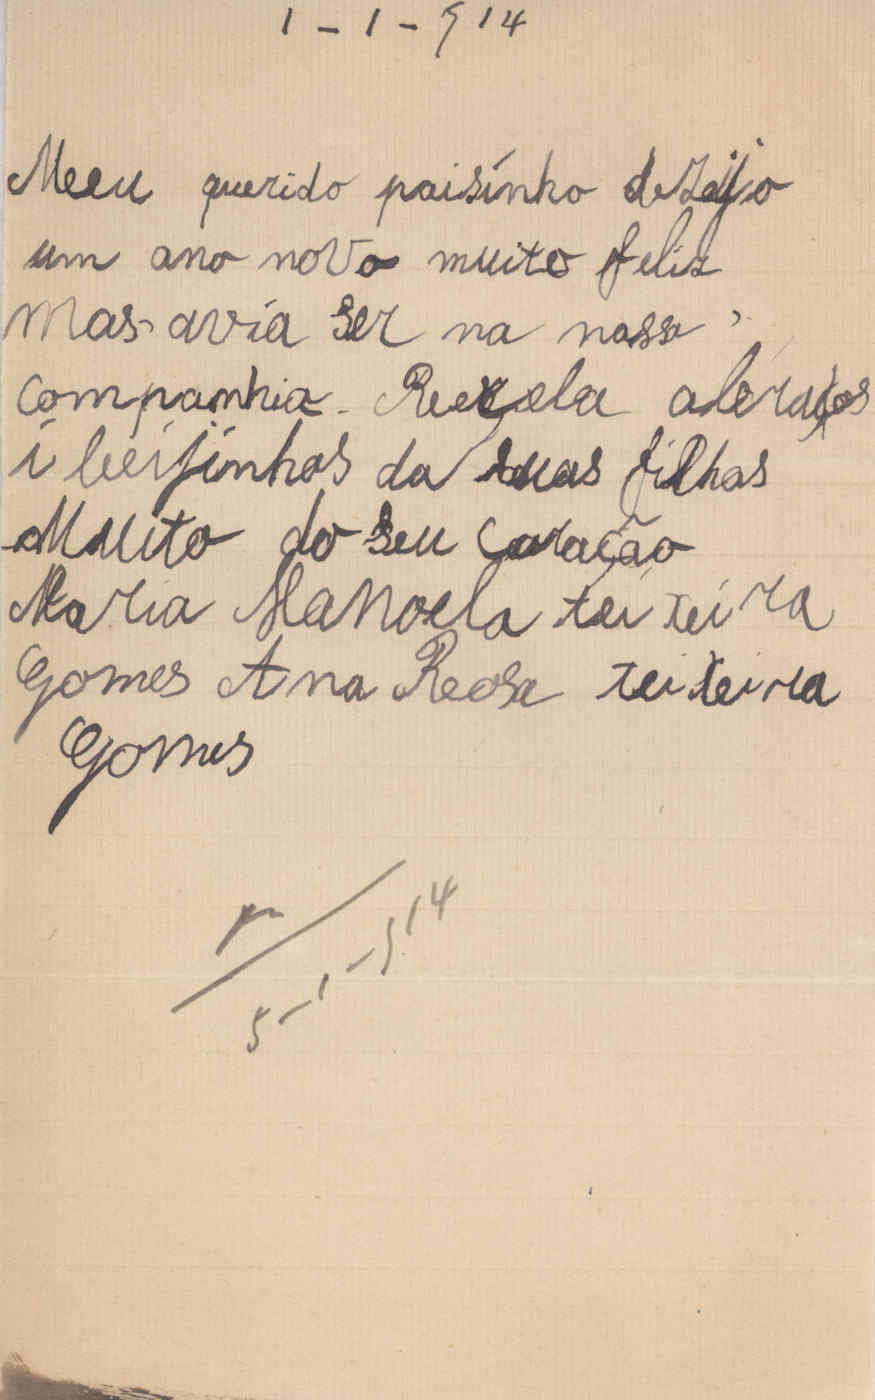 1-1-914
Meu querido paisínho dezeijo
um ano novo muito feliz
Mas avía ser na nossa
companhia. Receba abraços
i beijínhos da suas filhas
Muito do seu Coração
Maria Manoela teixeira
Gomes Ana Rosa teixeira
Gomes
5-1-914